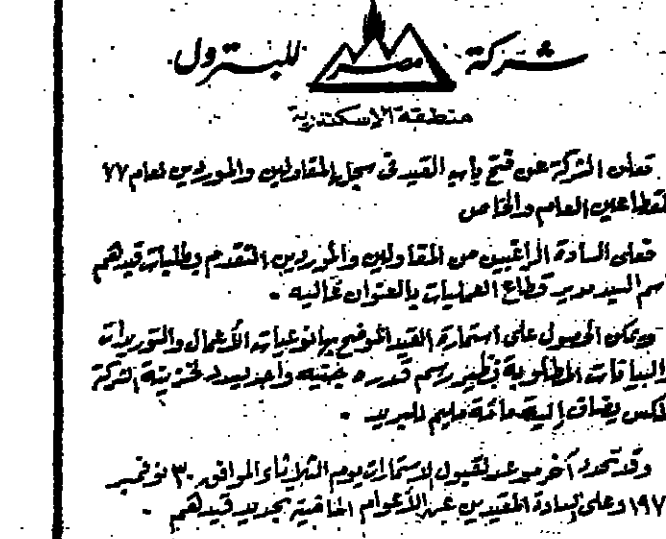 شركة مصر للبترول
منطقة الإسكندرية
تعلن الشركة عن فتح باب القيد فى سجل المقاولين والموردين لعام ٧٧
لقطاعين العام والخاص
فعلى السادة الراغبين من المقاولين والموردين التقدم بطلبات قيدهم
اسم السيد مدير قطاع العمليات بالعنوان عاليه .
ويمكن الحصول على استمارة القيد الموضح بها نوعيات الأعمال والتوريدات
البيانات المطلوبة نظير رسم قدره جنيه واحد يسدد لخزينة الشركة
يضاف إليه مائة مليم للبريد .
وقد تحدد آخر موعد لقبول الاستمارات يوم الثلاثاء الموافق ٣٠ نوفمبر
١٩٧ وعلى السادة المقيدين عن الأعوام الماضية تجديد قيدهم .